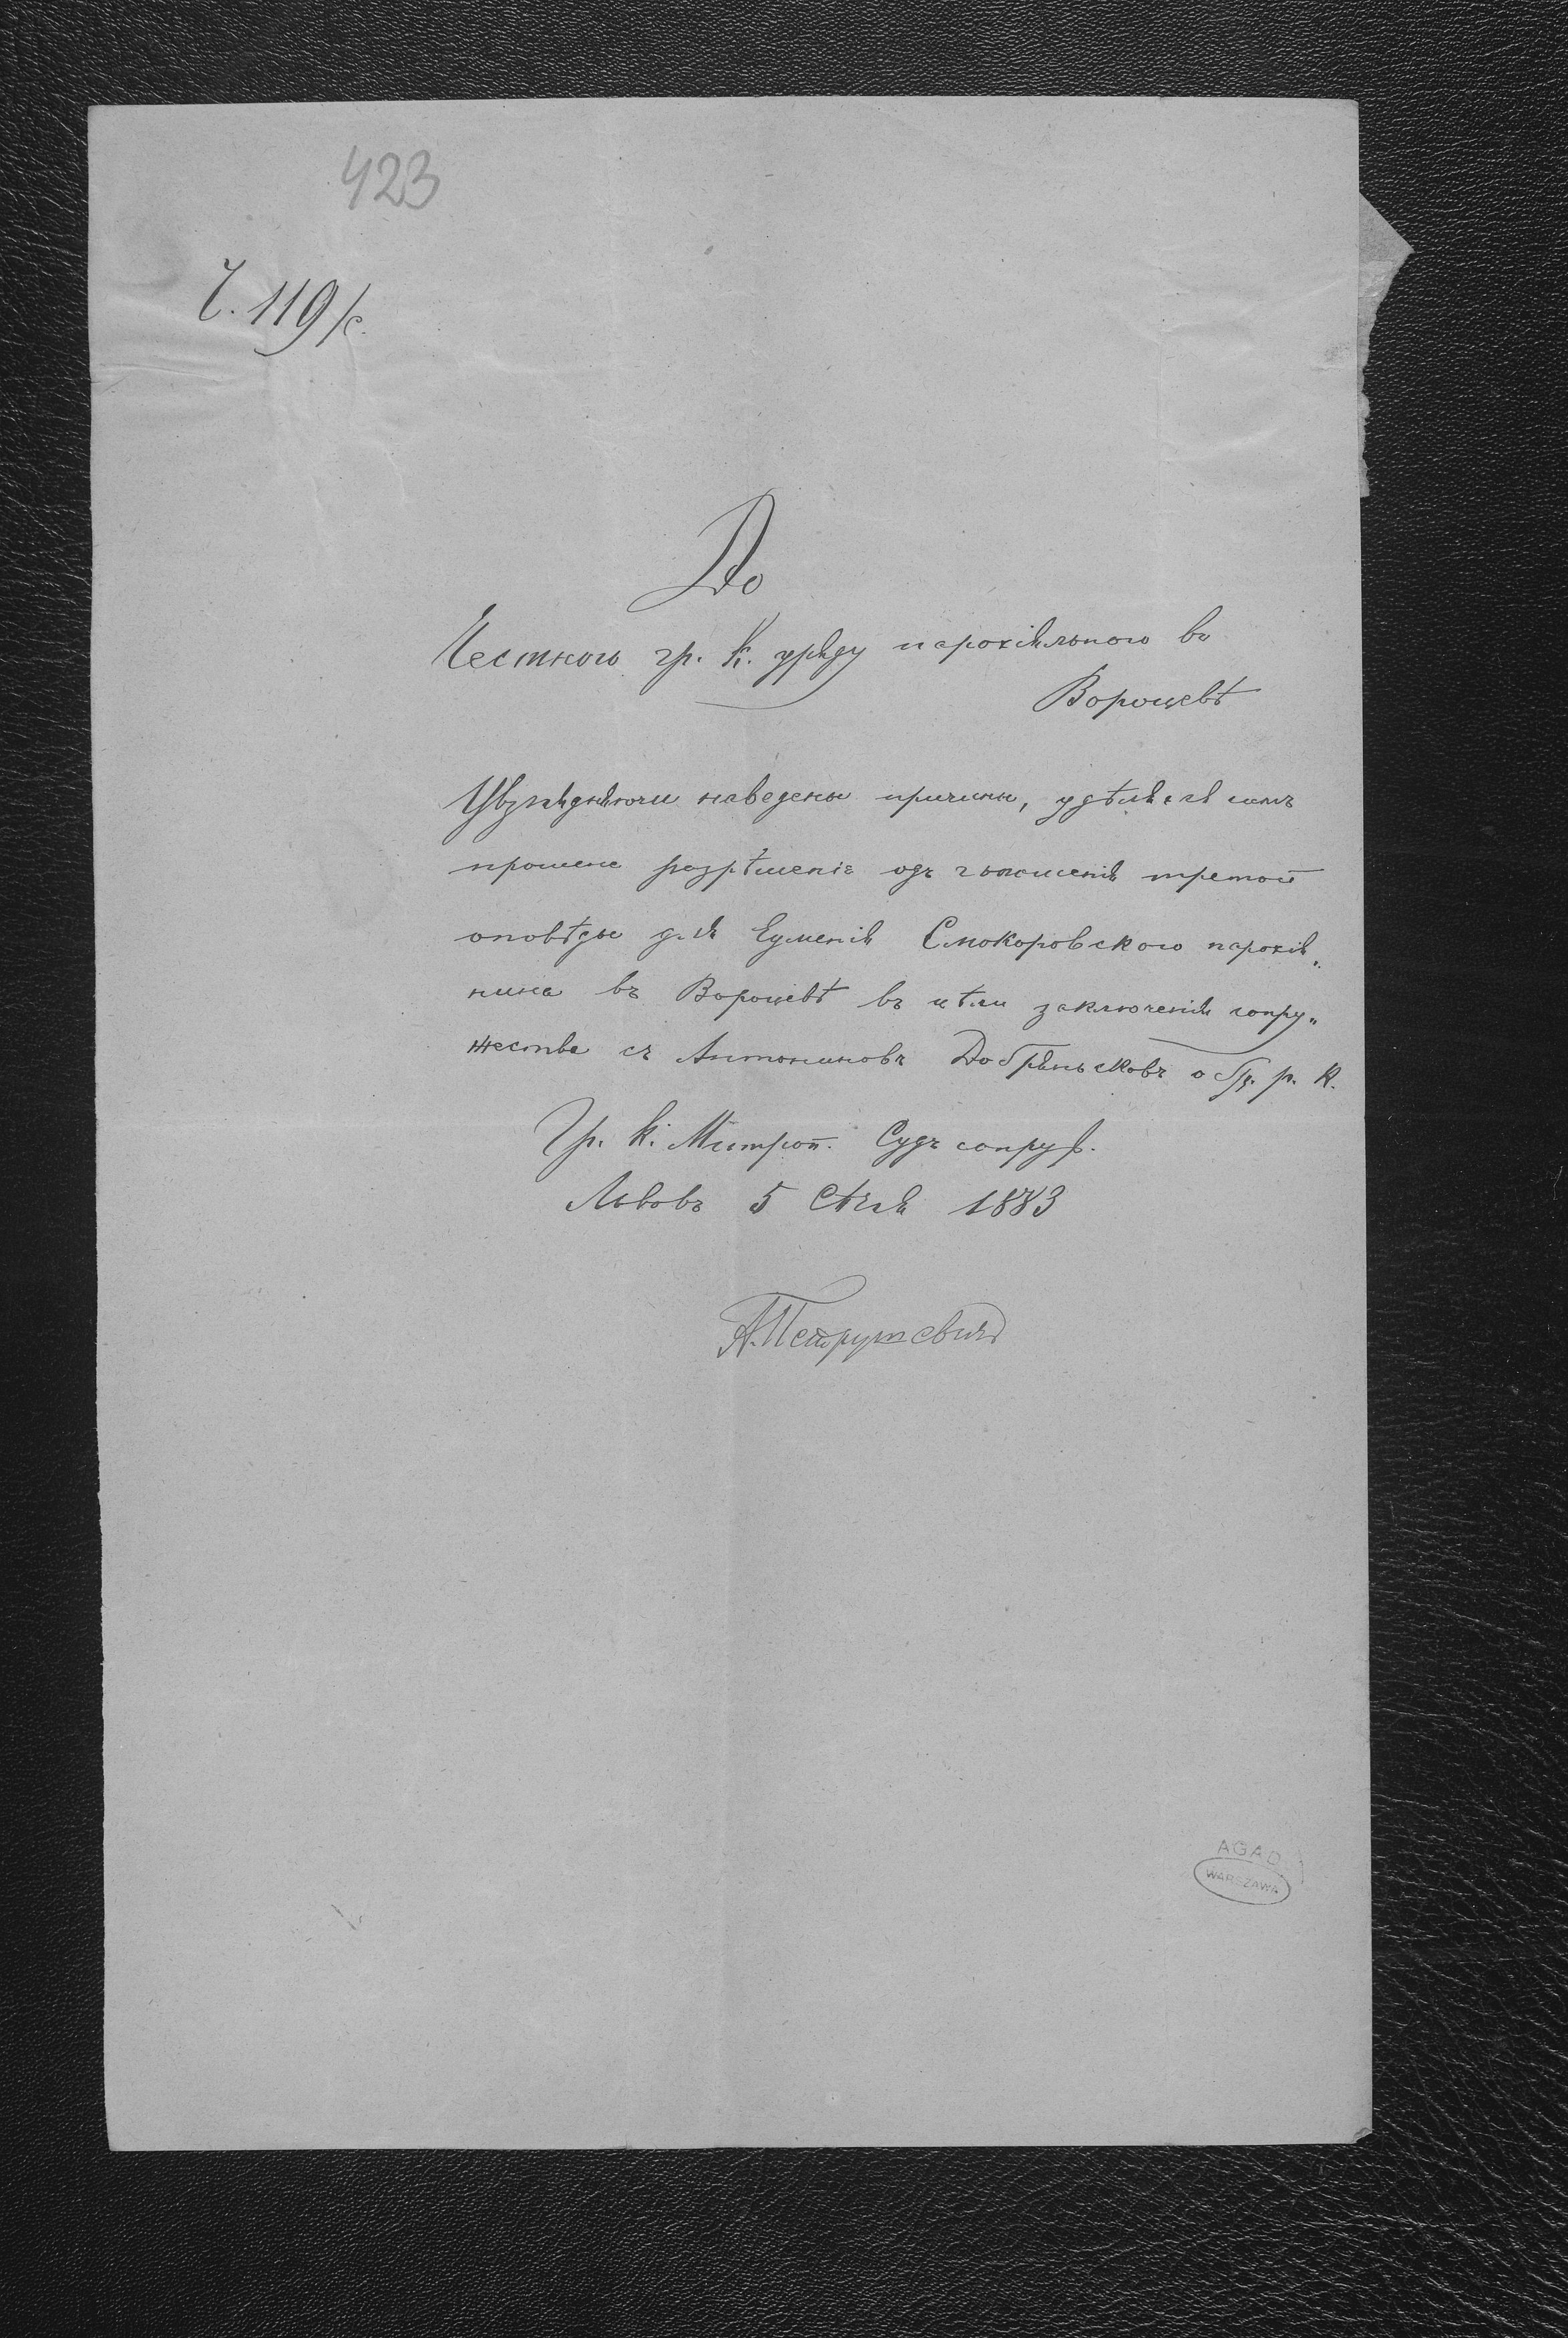 423
Ч. 119/с.
До
Честного гр. к. уряду парохіяльного въ
Вороцевѣ
Увзглядняючи наведены причины, удѣляеся симъ
прошене разрѣшеніе одъ голошенія третои
оповѣды для Еуменія Смокоровского парохія„
нина въ Вороцевѣ въ цѣли заключенія супру„
жества съ Антониновъ Добряньсковъ обр. р. к.
Гр. к. Митроп. Судъ супруж.
Львовъ 5 Сѣчня 1883
А. Петрушевичъ
AGAD
WARSZAWA